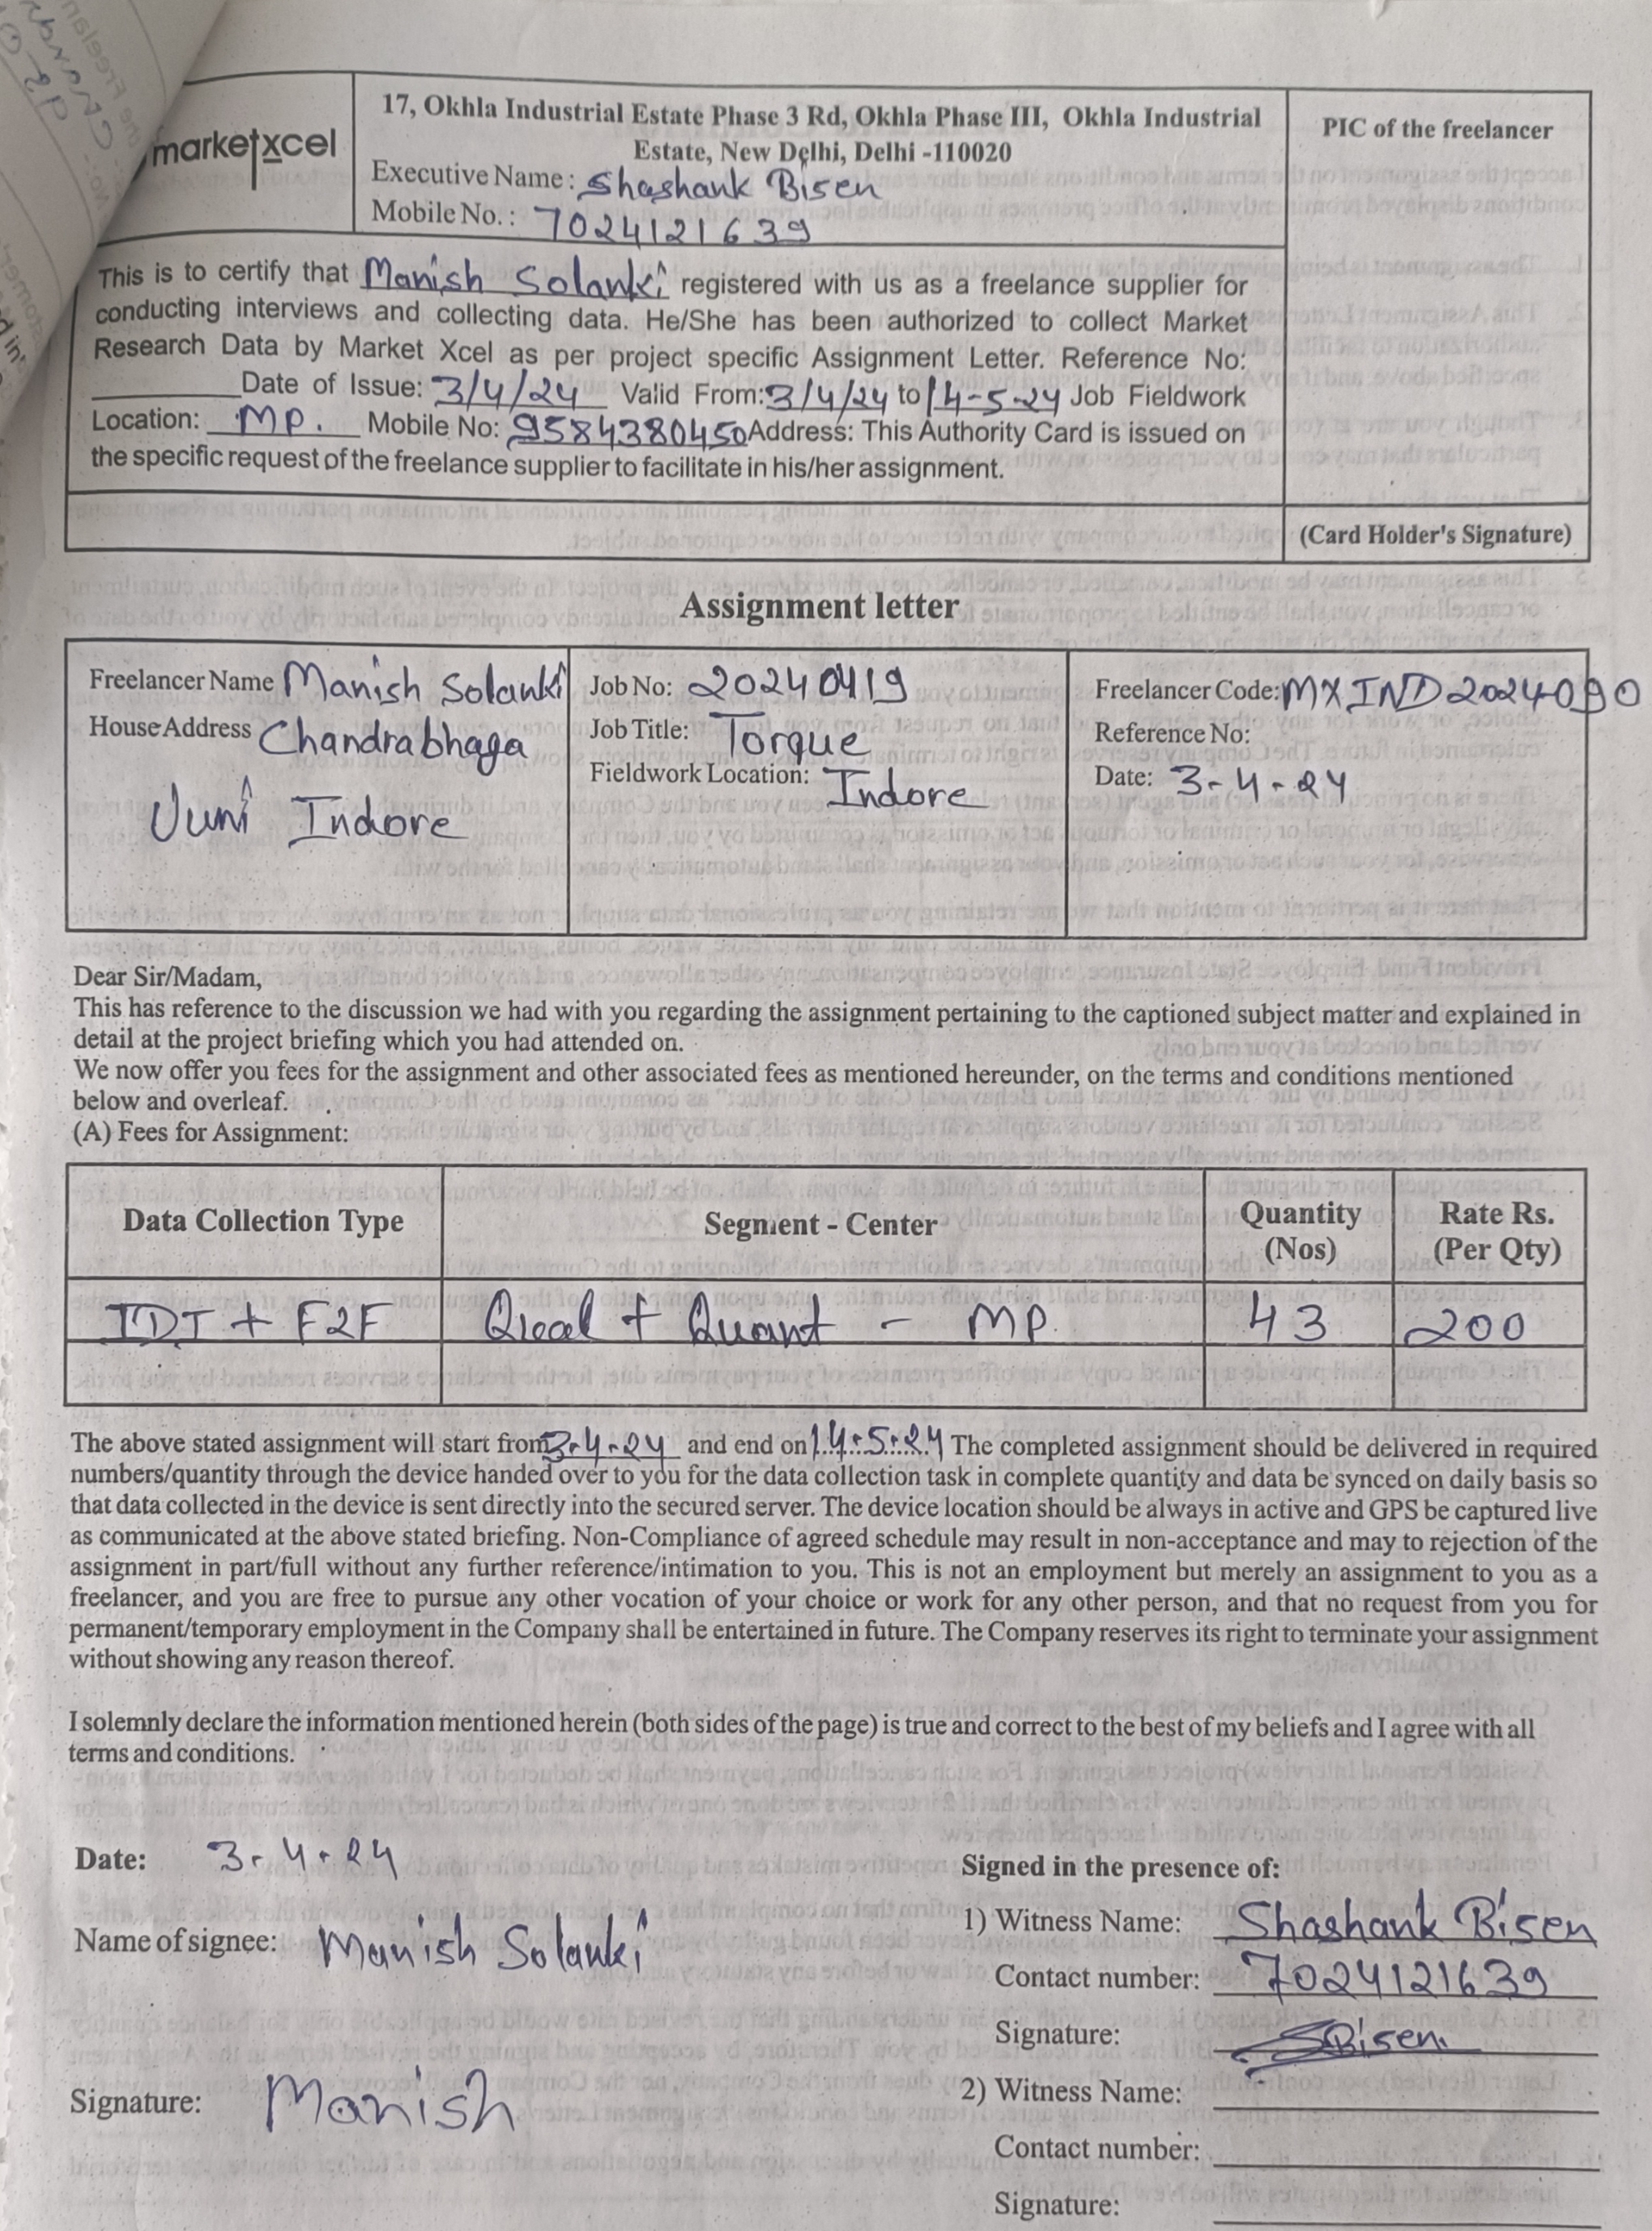 marketxcel
17, Okhla Industrial Estate Phase 3 Rd, Okhla Phase III, Okhla Industrial
Estate, New Delhi, Delhi -110020
Executive Name : Shashank Bisen
Mobile No. : 7024121639
PIC of the freelancer
This is to certify that Manish Solanki registered with us as a freelance supplier for
conducting interviews and collecting data. He/She has been authorized to collect Market
Research Data by Market Xcel as per project specific Assignment Letter. Reference No:
Date of Issue: 3/4/24 Valid From: 3/4/24 to 14-5-24 Job Fieldwork
Location: MP. Mobile No: 9584380450 Address: This Authority Card is issued on
the specific request of the freelance supplier to facilitate in his/her assignment.
(Card Holder's Signature)
Assignment letter
Freelancer Name Manish Solanki
House Address Chandrabhaga
Juni Indore
Job No: 20240419
Job Title: Torque
Fieldwork Location: Indore
Freelancer Code: MXIND2024090
Reference No:
Date: 3-4-24
Dear Sir/Madam,
This has reference to the discussion we had with you regarding the assignment pertaining to the captioned subject matter and explained in
detail at the project briefing which you had attended on.
We now offer you fees for the assignment and other associated fees as mentioned hereunder, on the terms and conditions mentioned
below and overleaf.
(A) Fees for Assignment:
Data Collection Type Segment - Center Quantity (Nos) Rate Rs. (Per Qty)
IDI + F2F Qual + Quant - MP. 43 200
The above stated assignment will start from 3-4-24 and end on 14-5-24 The completed assignment should be delivered in required
numbers/quantity through the device handed over to you for the data collection task in complete quantity and data be synced on daily basis so
that data collected in the device is sent directly into the secured server. The device location should be always in active and GPS be captured live
as communicated at the above stated briefing. Non-Compliance of agreed schedule may result in non-acceptance and may to rejection of the
assignment in part/full without any further reference/intimation to you. This is not an employment but merely an assignment to you as a
freelancer, and you are free to pursue any other vocation of your choice or work for any other person, and that no request from you for
permanent/temporary employment in the Company shall be entertained in future. The Company reserves its right to terminate your assignment
without showing any reason thereof.
I solemnly declare the information mentioned herein (both sides of the page) is true and correct to the best of my beliefs and I agree with all
terms and conditions.
Date: 3-4-24
Name of signee: Manish Solanki
Signature: Manish
Signed in the presence of:
1) Witness Name: Shashank Bisen
Contact number: 7024121639
Signature: SBisen
2) Witness Name:
Contact number:
Signature: